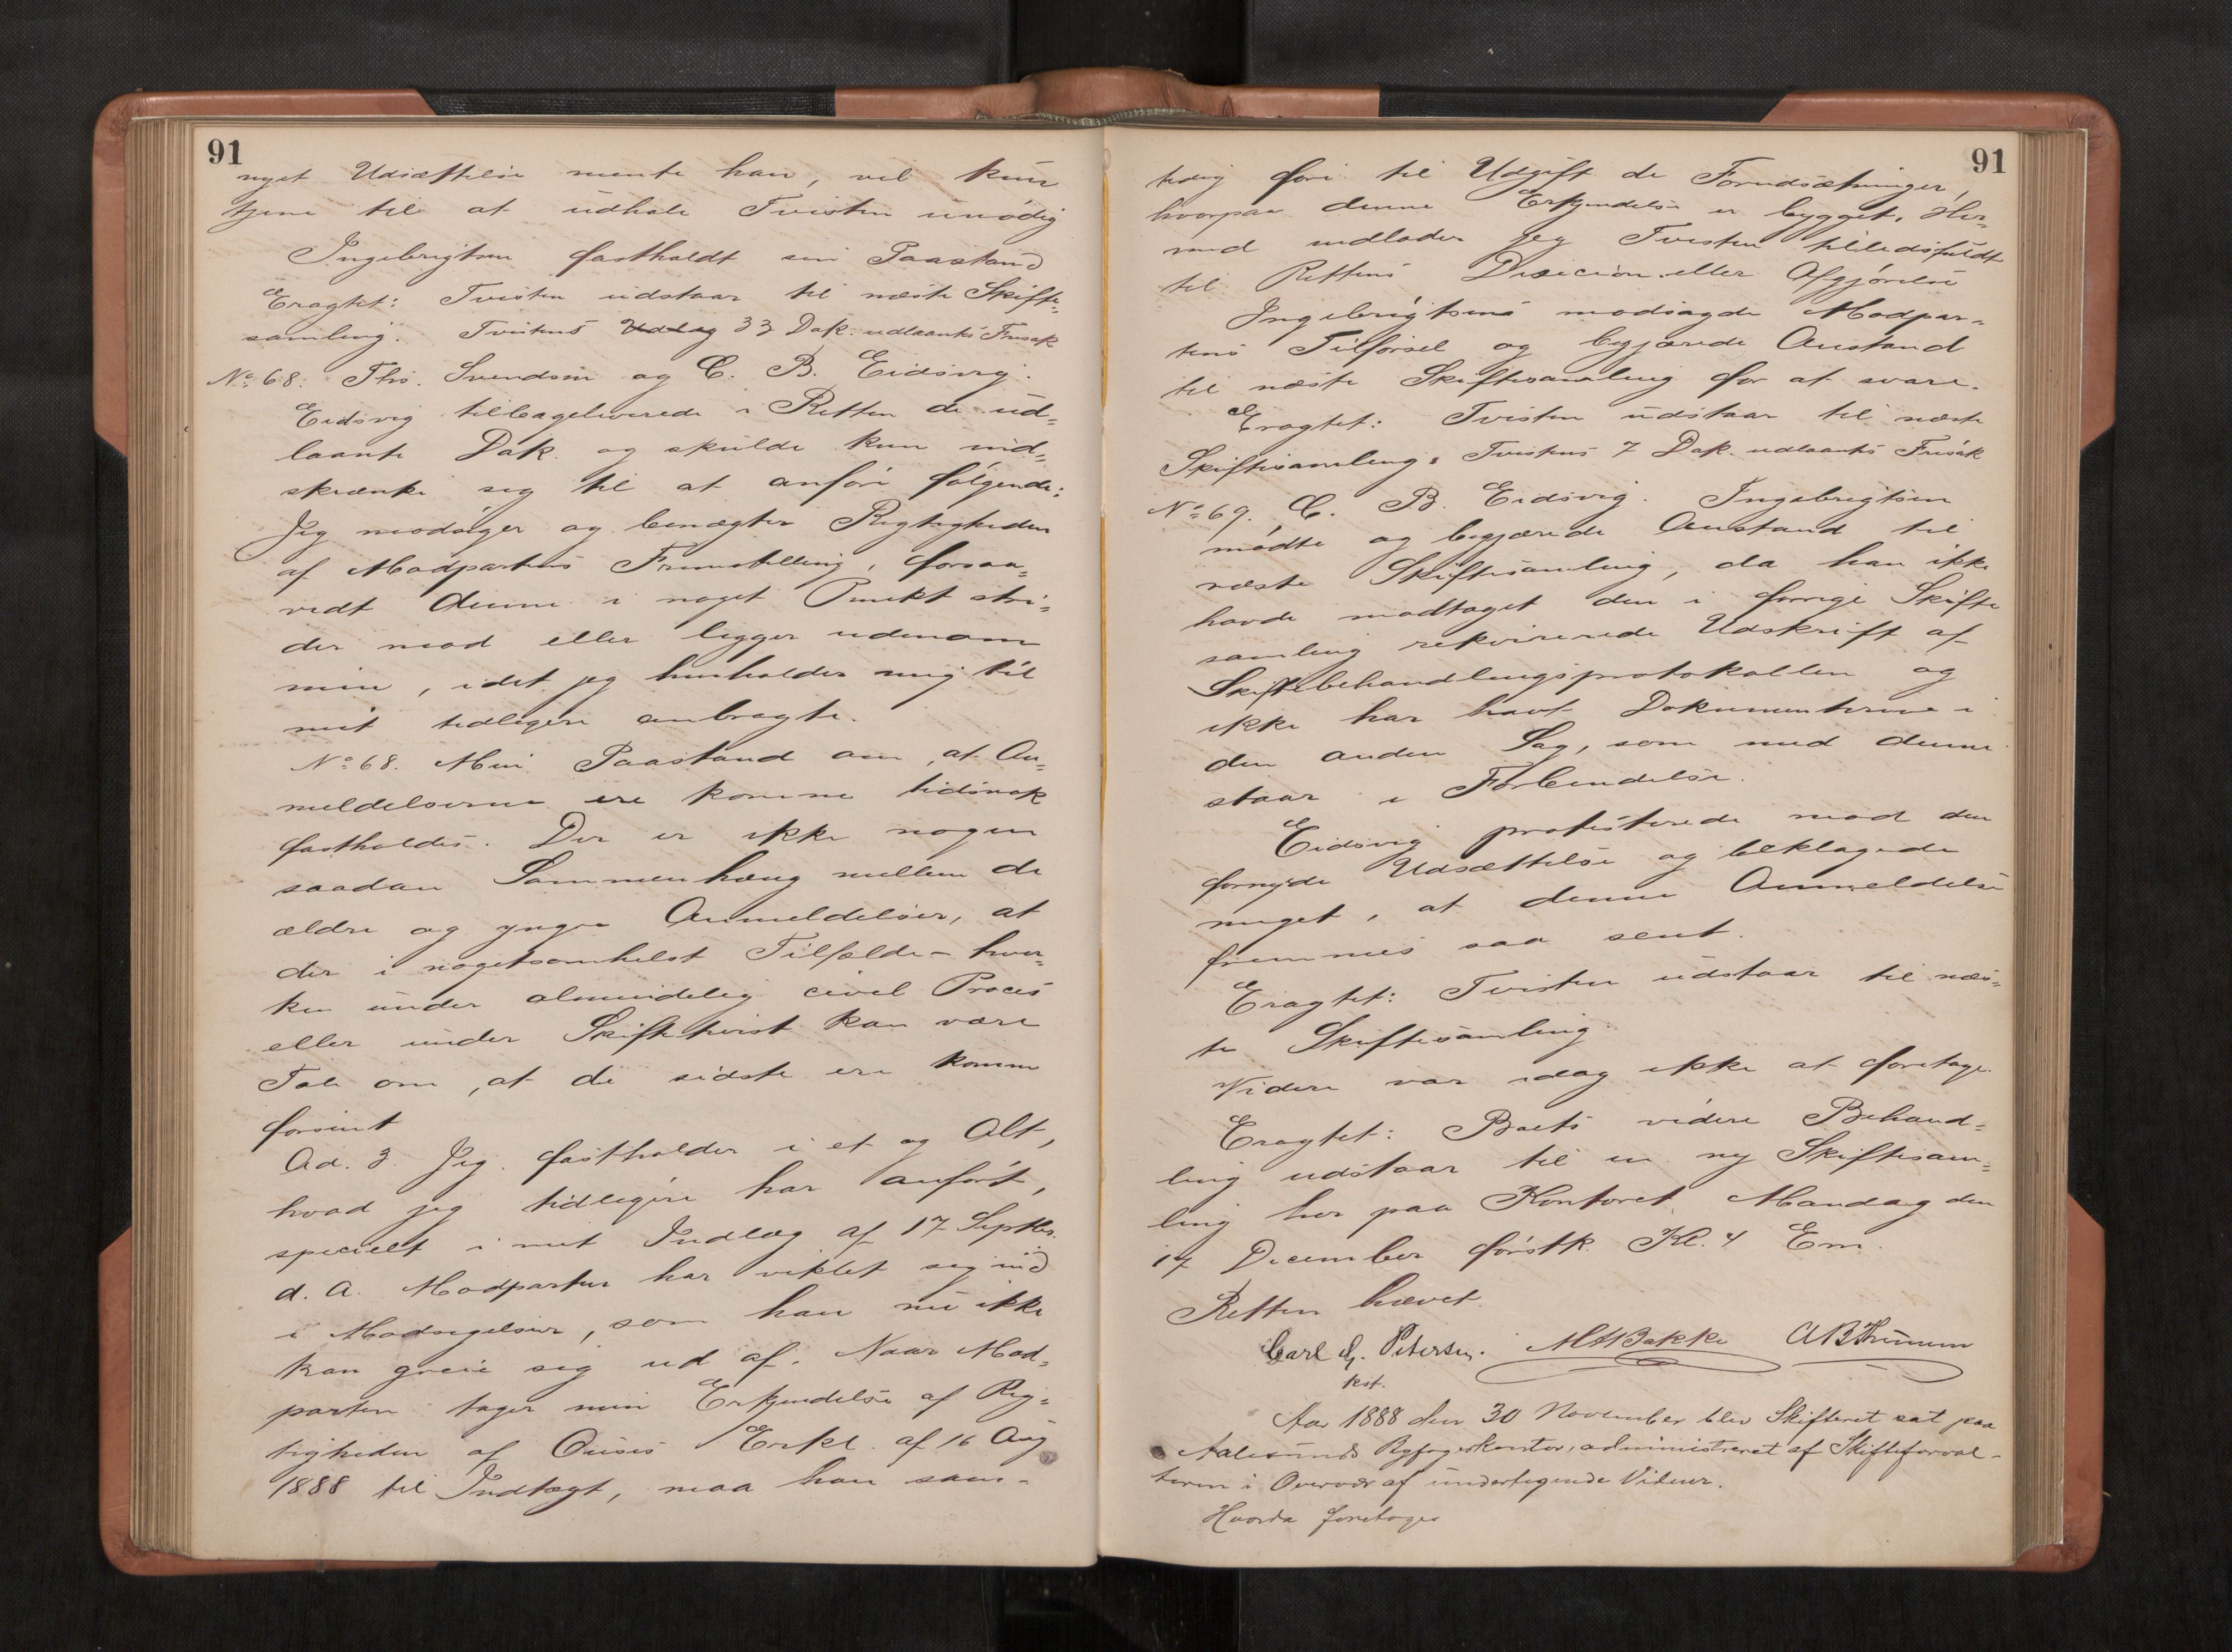 91
nyet Udsættelse mente han, vil kun
tjene til at udhale Tvisten unødig
Ingebrigtsen fastholdt sin Paastand
Eragtet: Tvisten udstaar til næste Skifte-
samling. Tvistens Udlag 33 Dok. udlaants Frisak
No 68. Ths. Svendsen og C. B. Eidsvig.
Eidsvig tilbageleverede i Retten de ud=
laante Dok. og skulde kun ind=
skrænke sig til at anføre følgende:
Jeg modsiger og benægter Rigtigheden
af Modpartens Fremstilling, forsaa=
vidt denne i noget Punkt stri=
der mod eller ligger udenom
min, idet jeg henholder mig til
mit tidligere anbragte.
No 68. Min Paastand om, at An=
meldelserne ere komne tidsnok
fastholdes. Der er ikke nogen
saadan Sammenhæng mellem de
ældre og yngre Anmeldelser, at
der i nogetsomhelst Tilfælde - hver=
ken under almindelig civil Proces
eller under Skiftetvist kan være
Tale om, at de sidste ere komne
forsent
Ad. 3. Jeg fastholder i et og Alt,
hvad jeg tidligere har anført,
specielt i mit Indlæg af 17 Septbr.
d. A. Modparten har viklet sig ind
i Modsigelser, som han nu ikke
kan greie sig ud af. Naar Mod=
parten tager min Erkjendelse af Rig=
tigheden af Erkl. af 16 Aug
1888 til Indtægt, maa han sam-
91
tidig føre til Udgift de Forudsætninger,
hvorpaa denne Erkjendelse er bygget. Her=
med indlader jeg Tvisten tilledsfuldt
til Rettens Desicion eller Afgjørelse
Ingebrigtsens modsagde Modpar=
tens Tilførsel og begjærede Anstand
til næste Skiftesamling for at svare.
Eragtet: Tvisten udstaar til næste
Skiftesamling. Tvistens 7 Dok. udlaants Frisak
No 69. C. B. Eidsvig. Ingebrigtsen
mødte og begjærede Anstand til
næste Skiftesamling, da han ikke
havde modtaget den i forrige Skifte
samling rekvirerede Udskrift af
Skiftebehandlingsprotokollen og
ikke har havt Dokumenterne i
den anden Sag, som med denne
staar i Forbindelse.
Eidsvig protesterede mod den
fornyede Udsættelse og beklagede
meget, at denne Anmeldelse
fremmes saa sent.
Eragtet: Tvisten udstaar til næs=
te Skiftesamling.
Videre var idag ikke at foretage.
Eragtet: Boets videre Behand=
ling udstaar til en ny Skiftesam=
ling her paa Kontoret Mandag den
17 December førstk. Kl. 4 Em.
Retten hævet.
Carl G. Petersen. MABakke ABThinnem
kst.
Aar 1888 den 30 November blev Skifteret sat paa
Aalesunds Byfogeskontor, administreret af Skifteforval-
teren i Overvær af undertegnede Vidner.
Hvorda foretoges